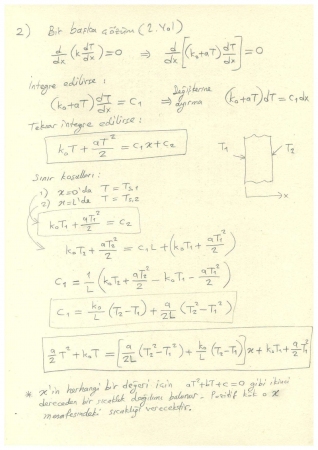 2) Bir başka çözüm (2. Yol)
d/dx (k dT/dx) = 0 ⇒ d/dx [(k₀+aT) dT/dx] = 0
İntegre edilirse ;
(k₀+aT) dT/dx = C₁ ⇒ Değişkenlerine ayırma (k₀+aT)dT = C₁dx
Tekrar integre edilirse :
k₀T + aT²/2 = C₁x + C₂
T₁ T₂
x
Sınır koşulları :
1) x=0'da T = Ts,1
2) x=L'de T = Ts,2
k₀T₁ + aT₁²/2 = C₂
k₀T₂ + aT₂²/2 = C₁L + (k₀T₁ + aT₁²/2)
C₁ = 1/L (k₀T₂ + aT₂²/2 - k₀T₁ - aT₁²/2)
C₁ = k₀/L (T₂-T₁) + a/2L (T₂²-T₁²)
a/2 T² + k₀T = [a/2L (T₂²-T₁²) + k₀/L (T₂-T₁)] x + k₀T₁ + a/2 T₁²
* x'in herhangi bir değeri için aT²+bT+c=0 gibi ikinci
dereceden bir sıcaklık dağılımı bulunur. Pozitif kök o x
mesafesindeki sıcaklığı verecektir.